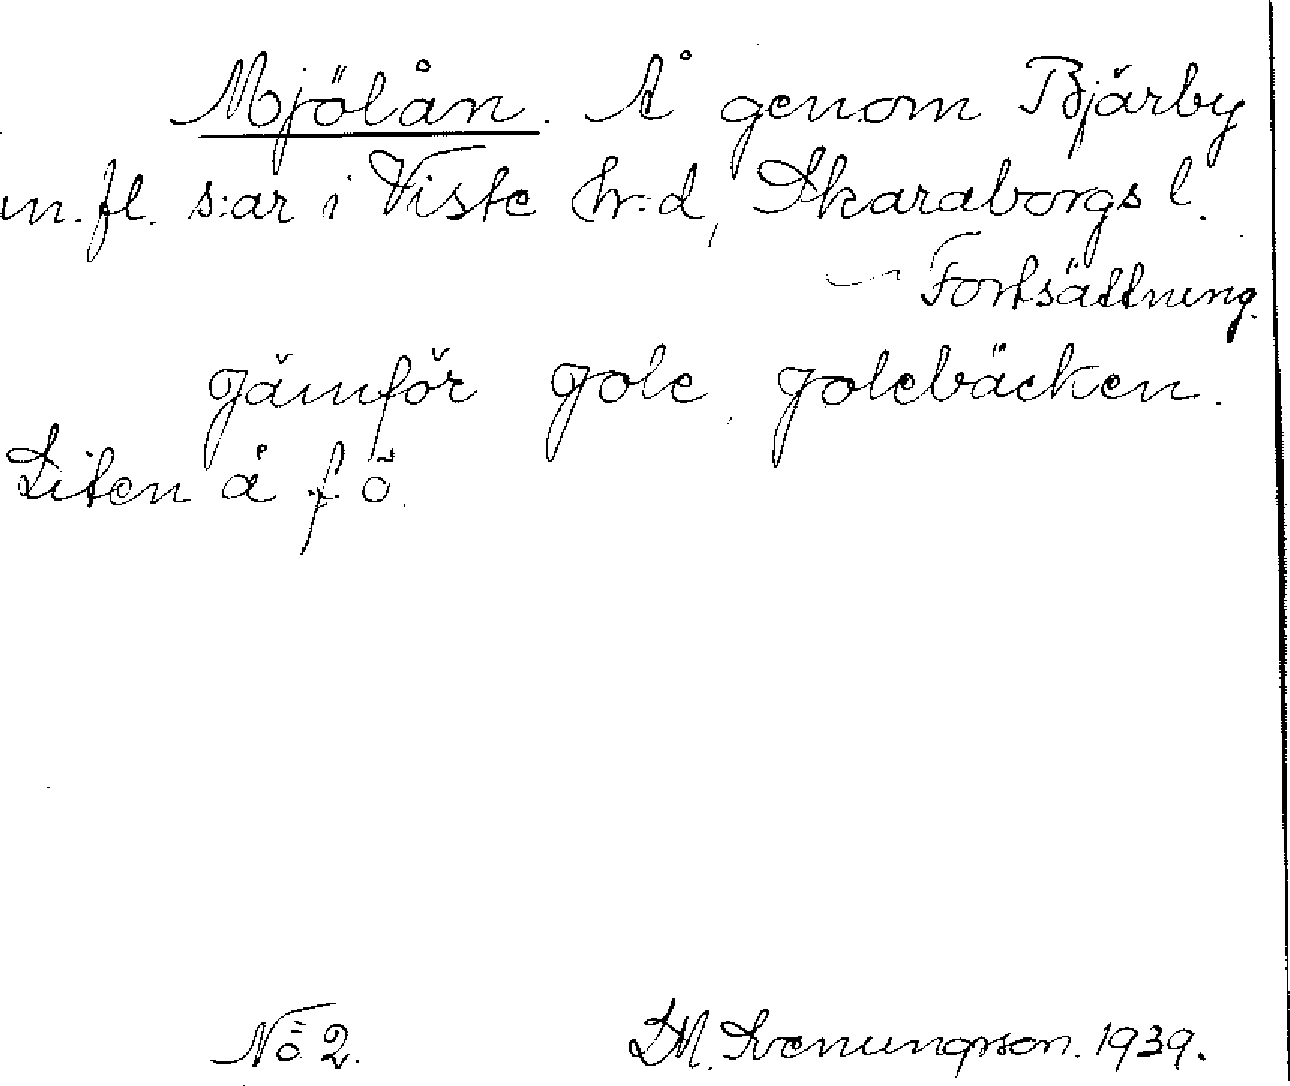 Mjölån. Å genom Bjärby
m.fl. s:ar i Viste hr:d, Skaraborgs l.
– Fortsättning.
Jämför Jole, Jolebäcken.
Liten å f ö.
No 2. D.M. Svenungsson. 1939.